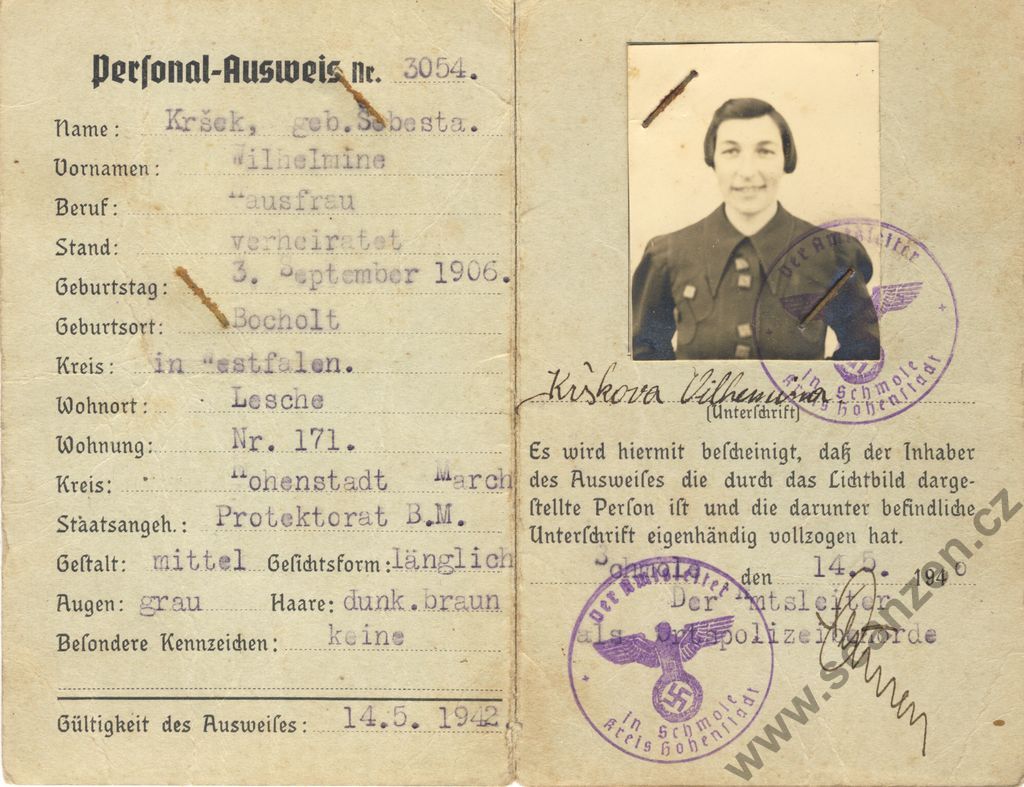 Personal-Ausweis Nr. 3054.
Name: Kršek, geb. Šebesta.
Vornamen: Wilhelmine
Beruf: Hausfrau
Stand: verheiratet
Geburtstag: 3. September 1906.
Geburtsort: Bocholt
Kreis: in Westfalen.
Wohnort: Lesche
Wohnung: Nr. 171.
Kreis: Hohenstadt March
Staatsangeh.: Protektorat B.M.
Gestalt: mittel Gesichtsform: länglich
Augen: grau Haare: dunk.braun
Besondere Kennzeichen: keine
Gültigkeit des Ausweises: 14.5. 1942.
Der Amtsleiter
in Schmole
Kreis Hohenstadt
Krškova Vilhemina
(Unterschrift)
Es wird hiermit bescheinigt, daß der Inhaber
des Ausweises die durch das Lichtbild darge-
stellte Person ist und die darunter befindliche
Unterschrift eigenhändig vollzogen hat.
Schmole den 14.5. 1940
Der Amtsleiter
als Ortspolizeibehörde
Der Amtsleiter
in Schmole
Kreis Hohenstadt
www.sconzen.cz